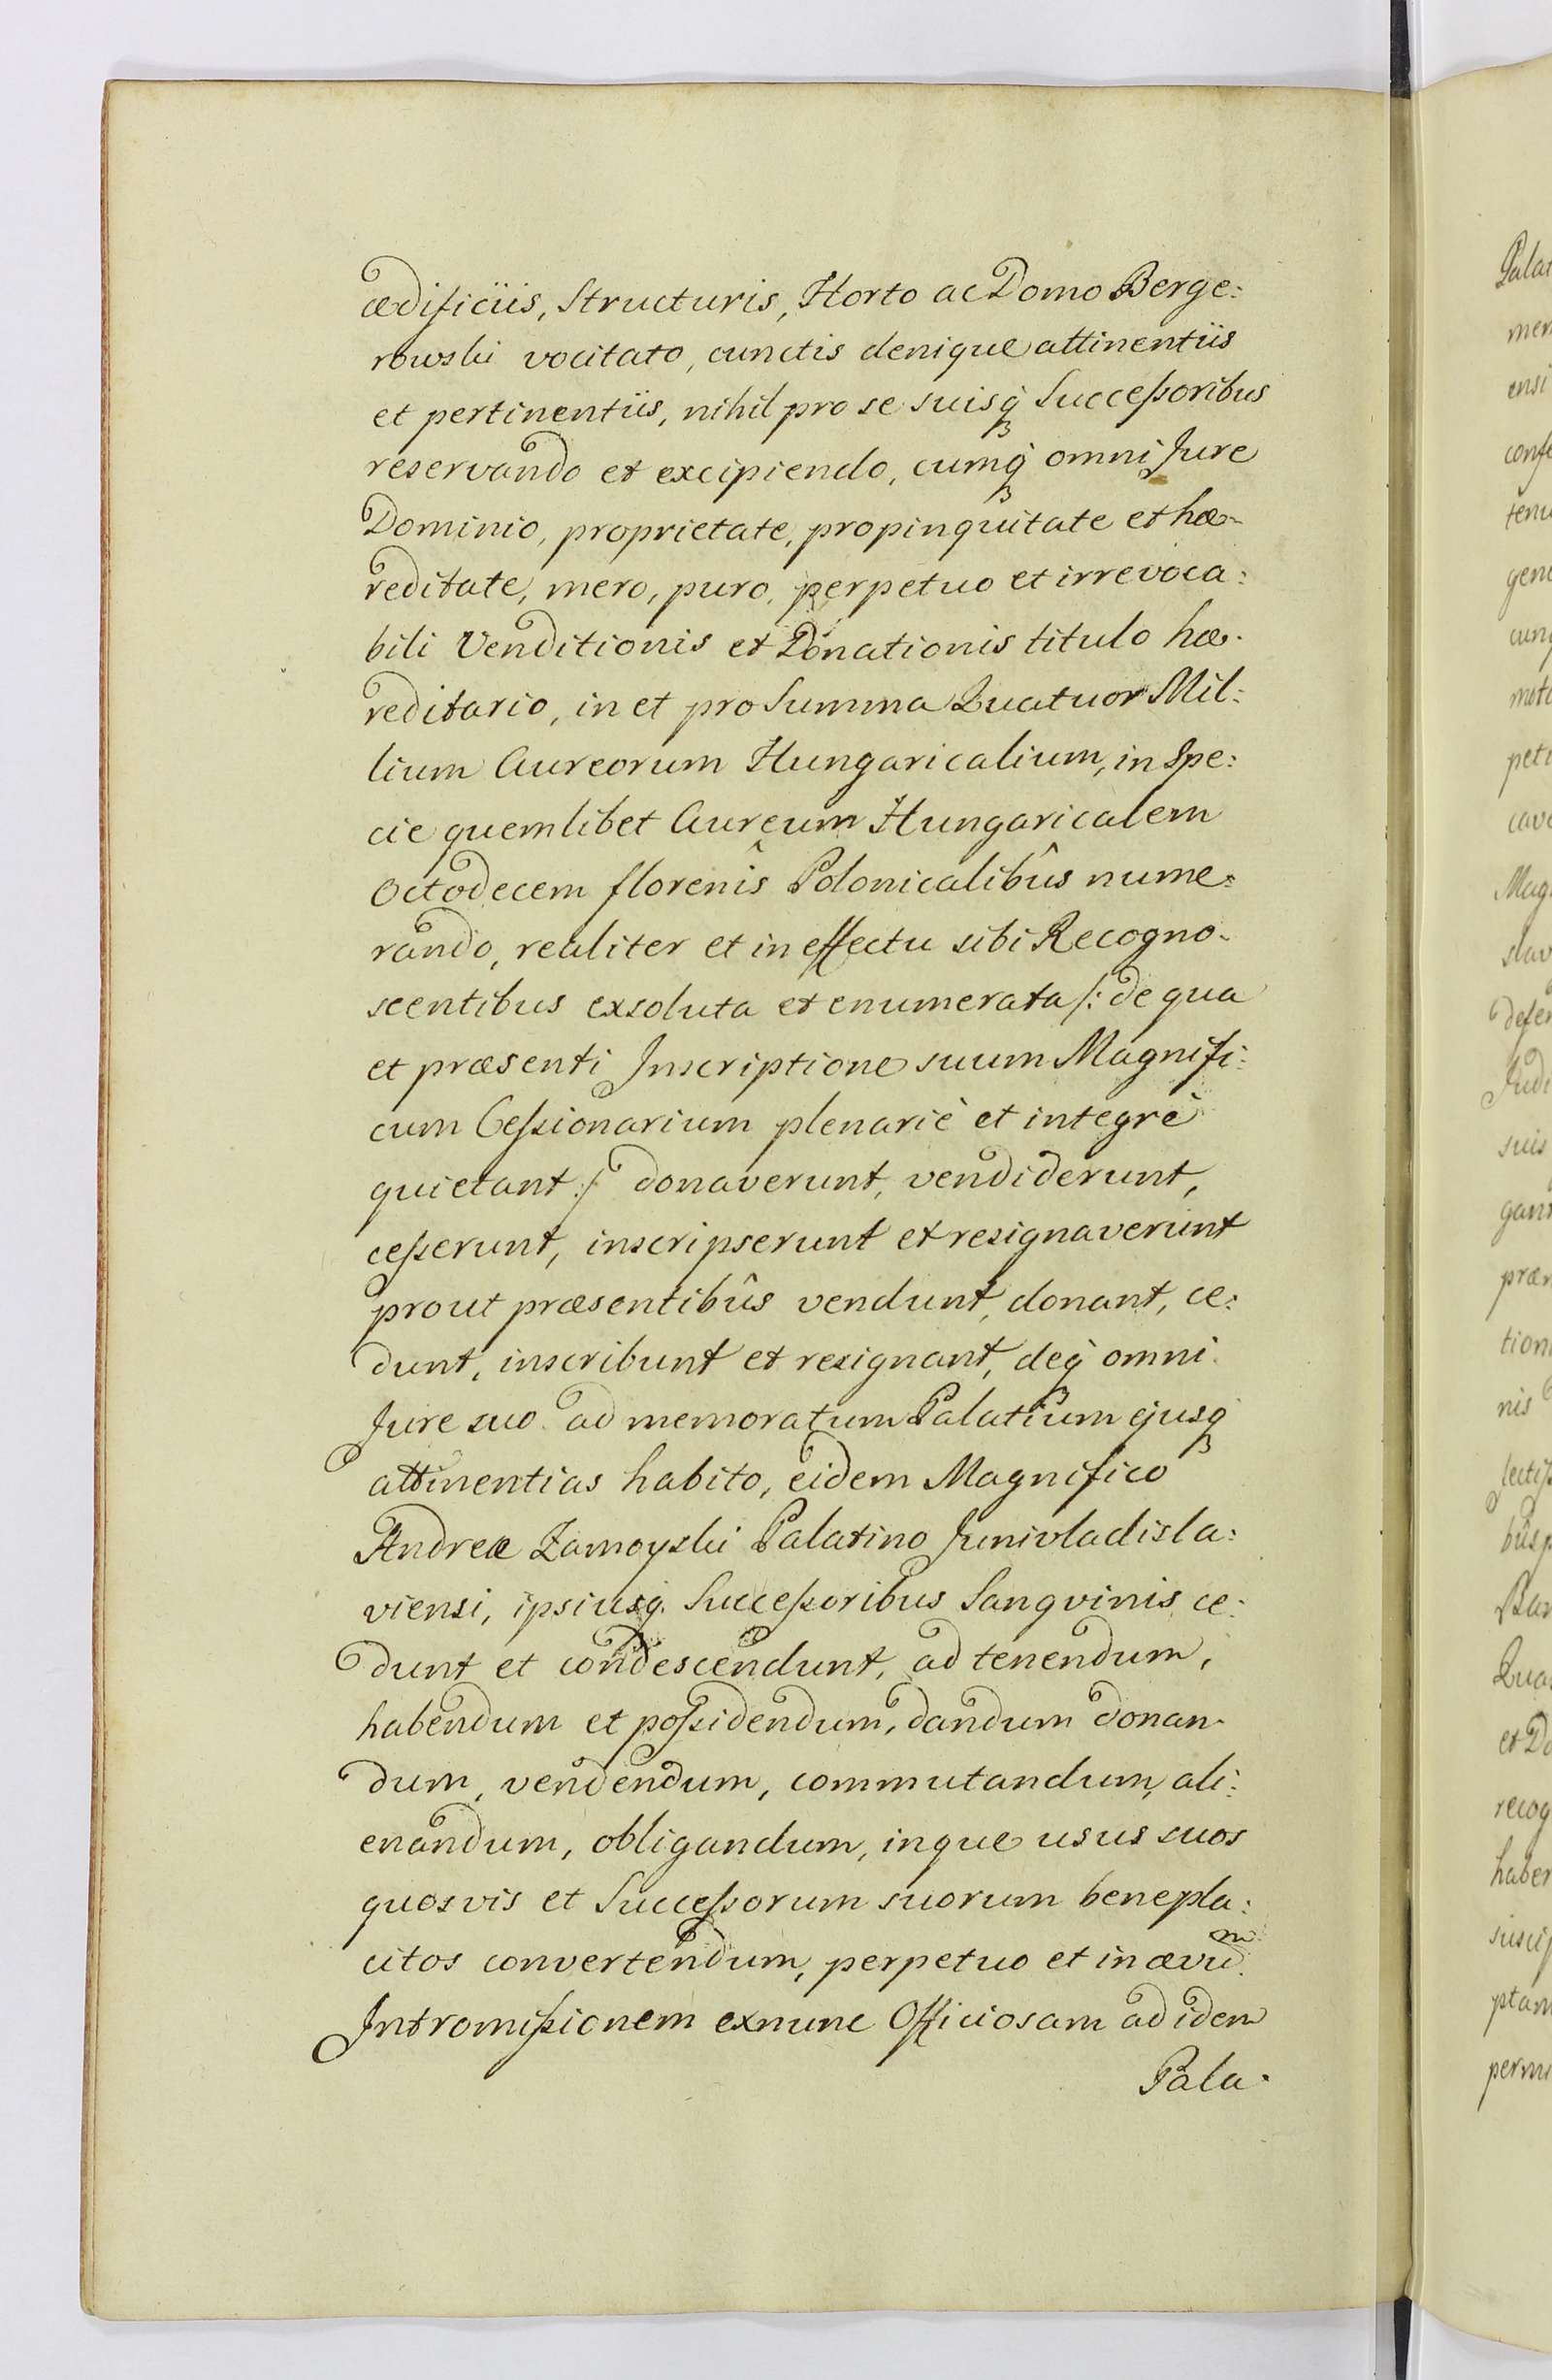 ædificiis, Structuris, Horto ac Domo Berge:
rowski vocitato, cunctis denique attinentiis
et pertinentiis, nihil pro se suisq́ꝫ Succeſsoribus
reservando et excipiendo, cumq́ꝫ omni Jure
Dominio, proprietate, propinquitate et hæ-
reditate, mero, puro, perpetuo et irrevoca:
bili Venditionis et Donationis titulo hæ-
reditario, in et pro Summa Quatuor Mil:
lium Aureorum Hungaricalium, in Spe:
cie quemlibet Aureum Hungaricalem
Octodecem florenîs Polonicalibûs nume:
rando, realiter et in effectu sibi Recogno-
scentibus exsoluta et enumerata /: de qua
et præsenti Inscriptione suum Magnifi:
cum Ceſsionarium plenariè et integrè
quietant :/ donaverunt, vendiderunt,
ceſserunt, inscripserunt et resignaverunt
prout præsentibûs vendunt, donant, ce:
dunt, inscribunt et resignant, deq́ꝫ omni
Jure suo ad memoratum Palatium ejusq́ꝫ
attinentias habito, eidem Magnifico
Andreæ Zamoyski Palatino Junivladisla:
viensi, ipsiusq́ꝫ Succeſsoribus Sangvinis ce:
dunt et condescendunt, ad tenendum,
habendum et poſsidendum, dandum donan-
dum, vendendum, commutandum, ali:
enandum, obligandum, inque usus suos
quosvis et Succeſsorum suorum benepla:
citos convertendum, perpetuo et in ævuᵐ.
Intromiſsionem exnunc Officiosam ad idem
Pala-
Palat
men
ensi
confe
tenu
gene
cunq
moto
peti
cave
Mag
slav
defen
Judi
suis
gani
præm
tion
nis
lectiſ
bûs p
Bar
Qua
et Do
recog
haber
suscip
ptam
permi